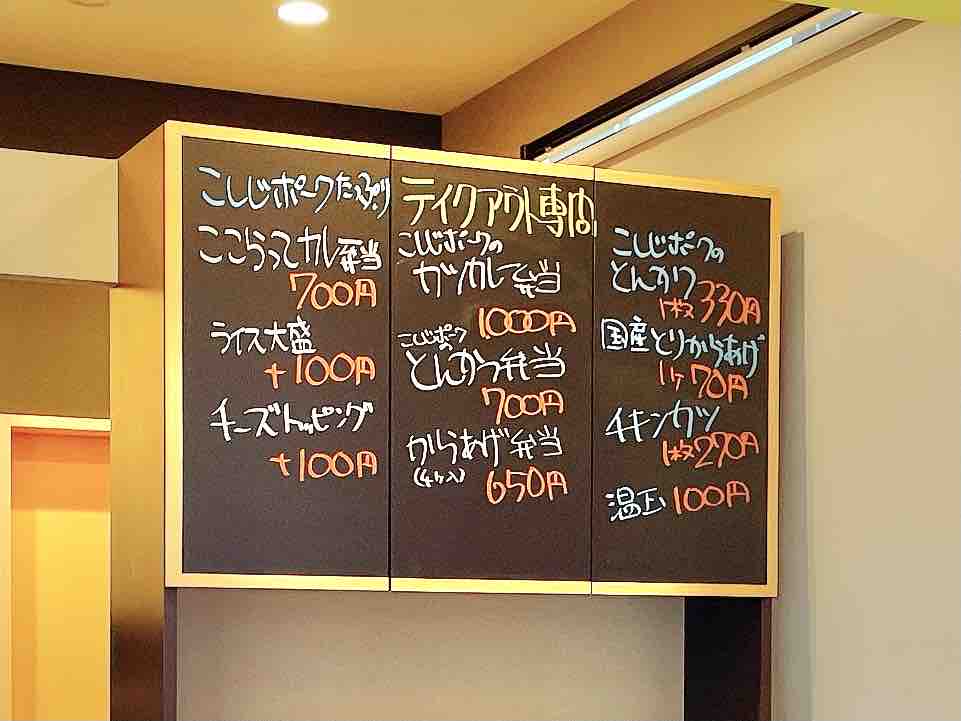 こしじポークたっぷり
ここらってカレー弁当
700円
ライス大盛
+100円
チーズトッピング
+100円
テイクアウト専門
こしじポークの
カツカレー弁当
1000円
こしじポークの
とんかつ弁当
700円
からあげ弁当
(4ヶ入) 650円
こしじポークの
とんかつ
1枚 330円
国産とりからあげ
1ヶ 70円
チキンカツ
1枚 270円
温玉 100円